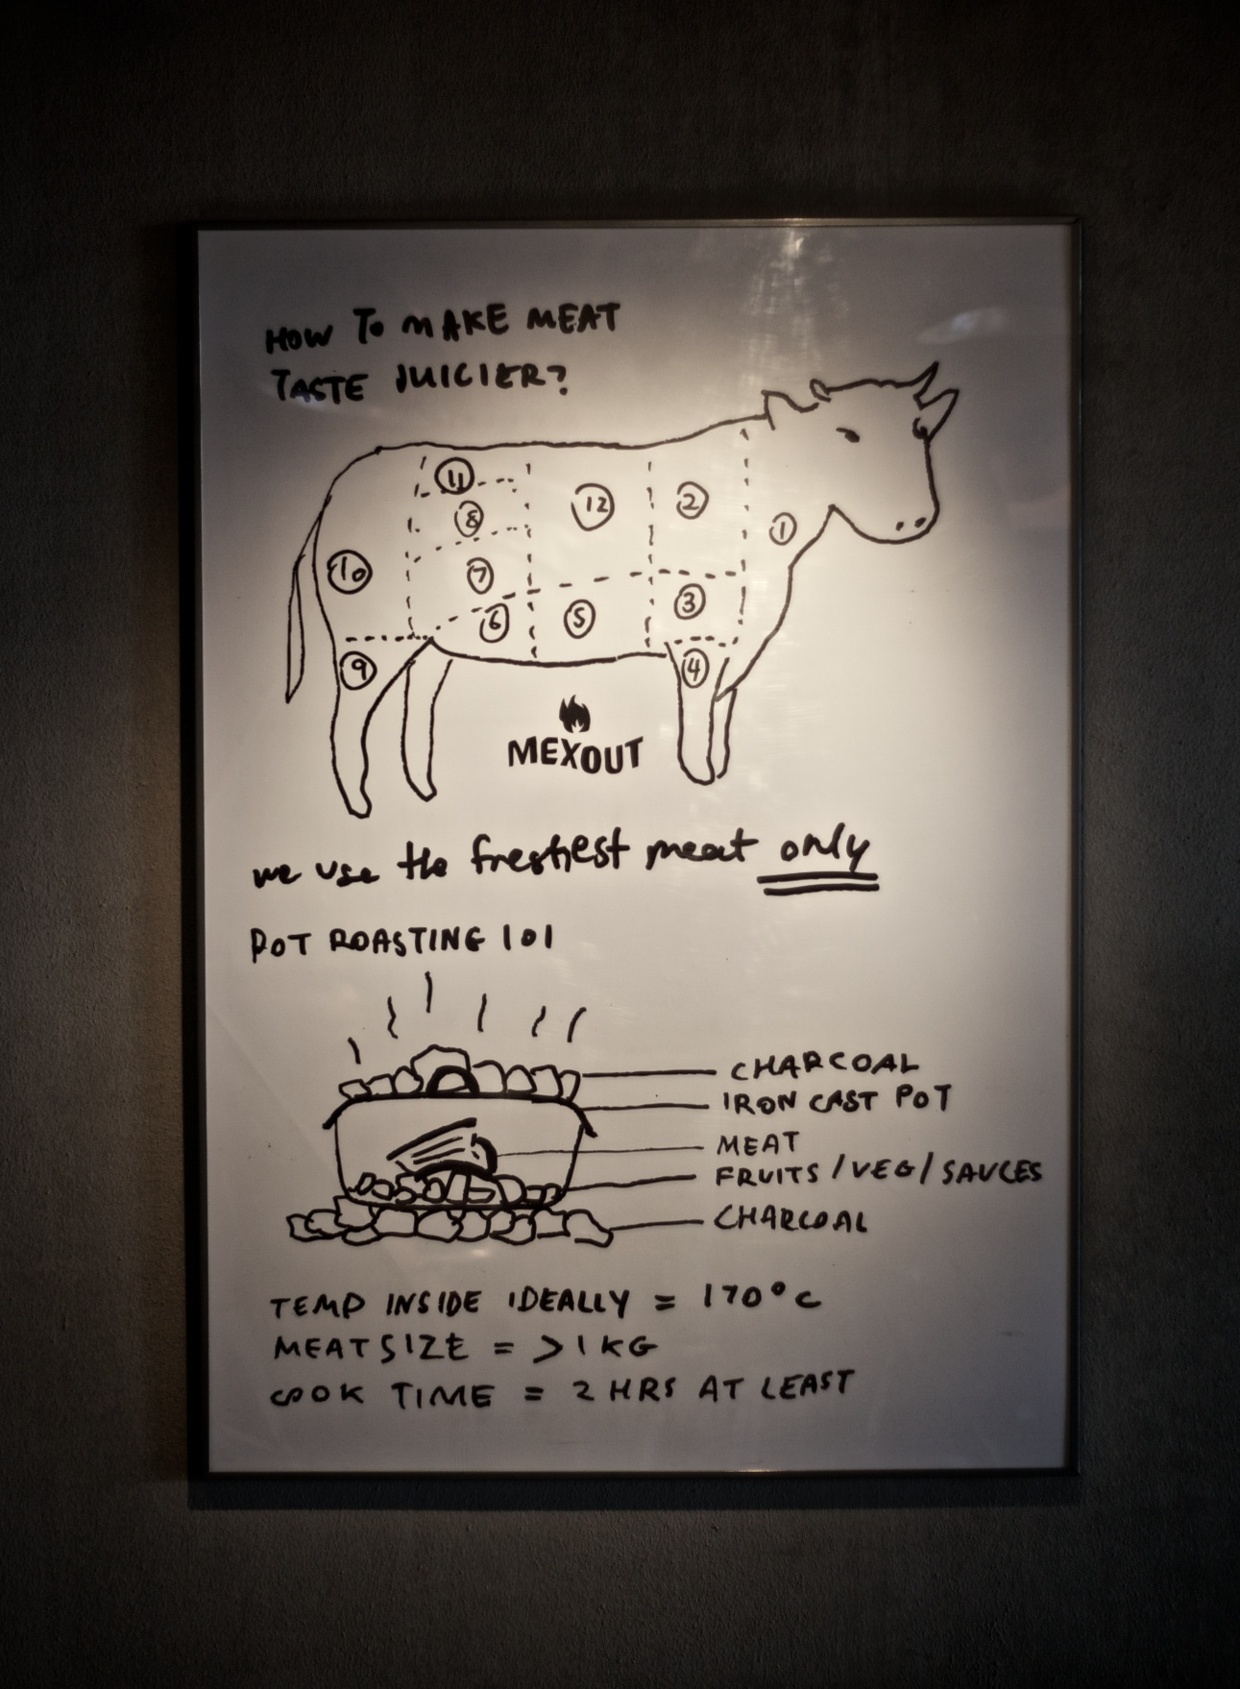 HOW TO MAKE MEAT
TASTE JUICIER?
11
8
12
2
1
10
7
3
6
5
9
4
MEXOUT
we use the freshest meat only
POT ROASTING 101
CHARCOAL
IRON CAST POT
MEAT
FRUITS / VEG / SAUCES
CHARCOAL
TEMP INSIDE IDEALLY = 170°C
MEAT SIZE = >1KG
COOK TIME = 2 HRS AT LEAST